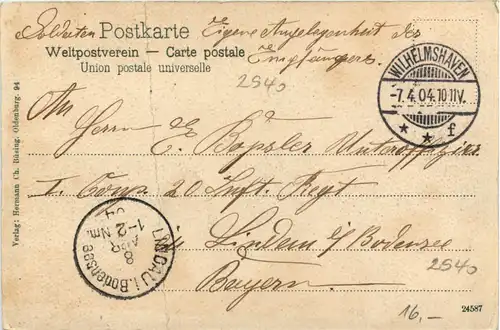 Soldaten Postkarte Eigene Angelegenheit des
Weltpostverein — Carte postale Empfängers
Union postale universelle
2540
WILHELMSHAVEN
-7.4.04.10-11V.
* * f
An
Herrn E. Bopsler Unteroffizier
I. Comp 20. Inft. Regt
in Lindau i/Bodensee
Bayern.
LINDAU i. Bodensee
8 APR 04
1-2 Nm.
2540
16,—
24587
Verlag: Hermann Ch. Büsing, Oldenburg. 94